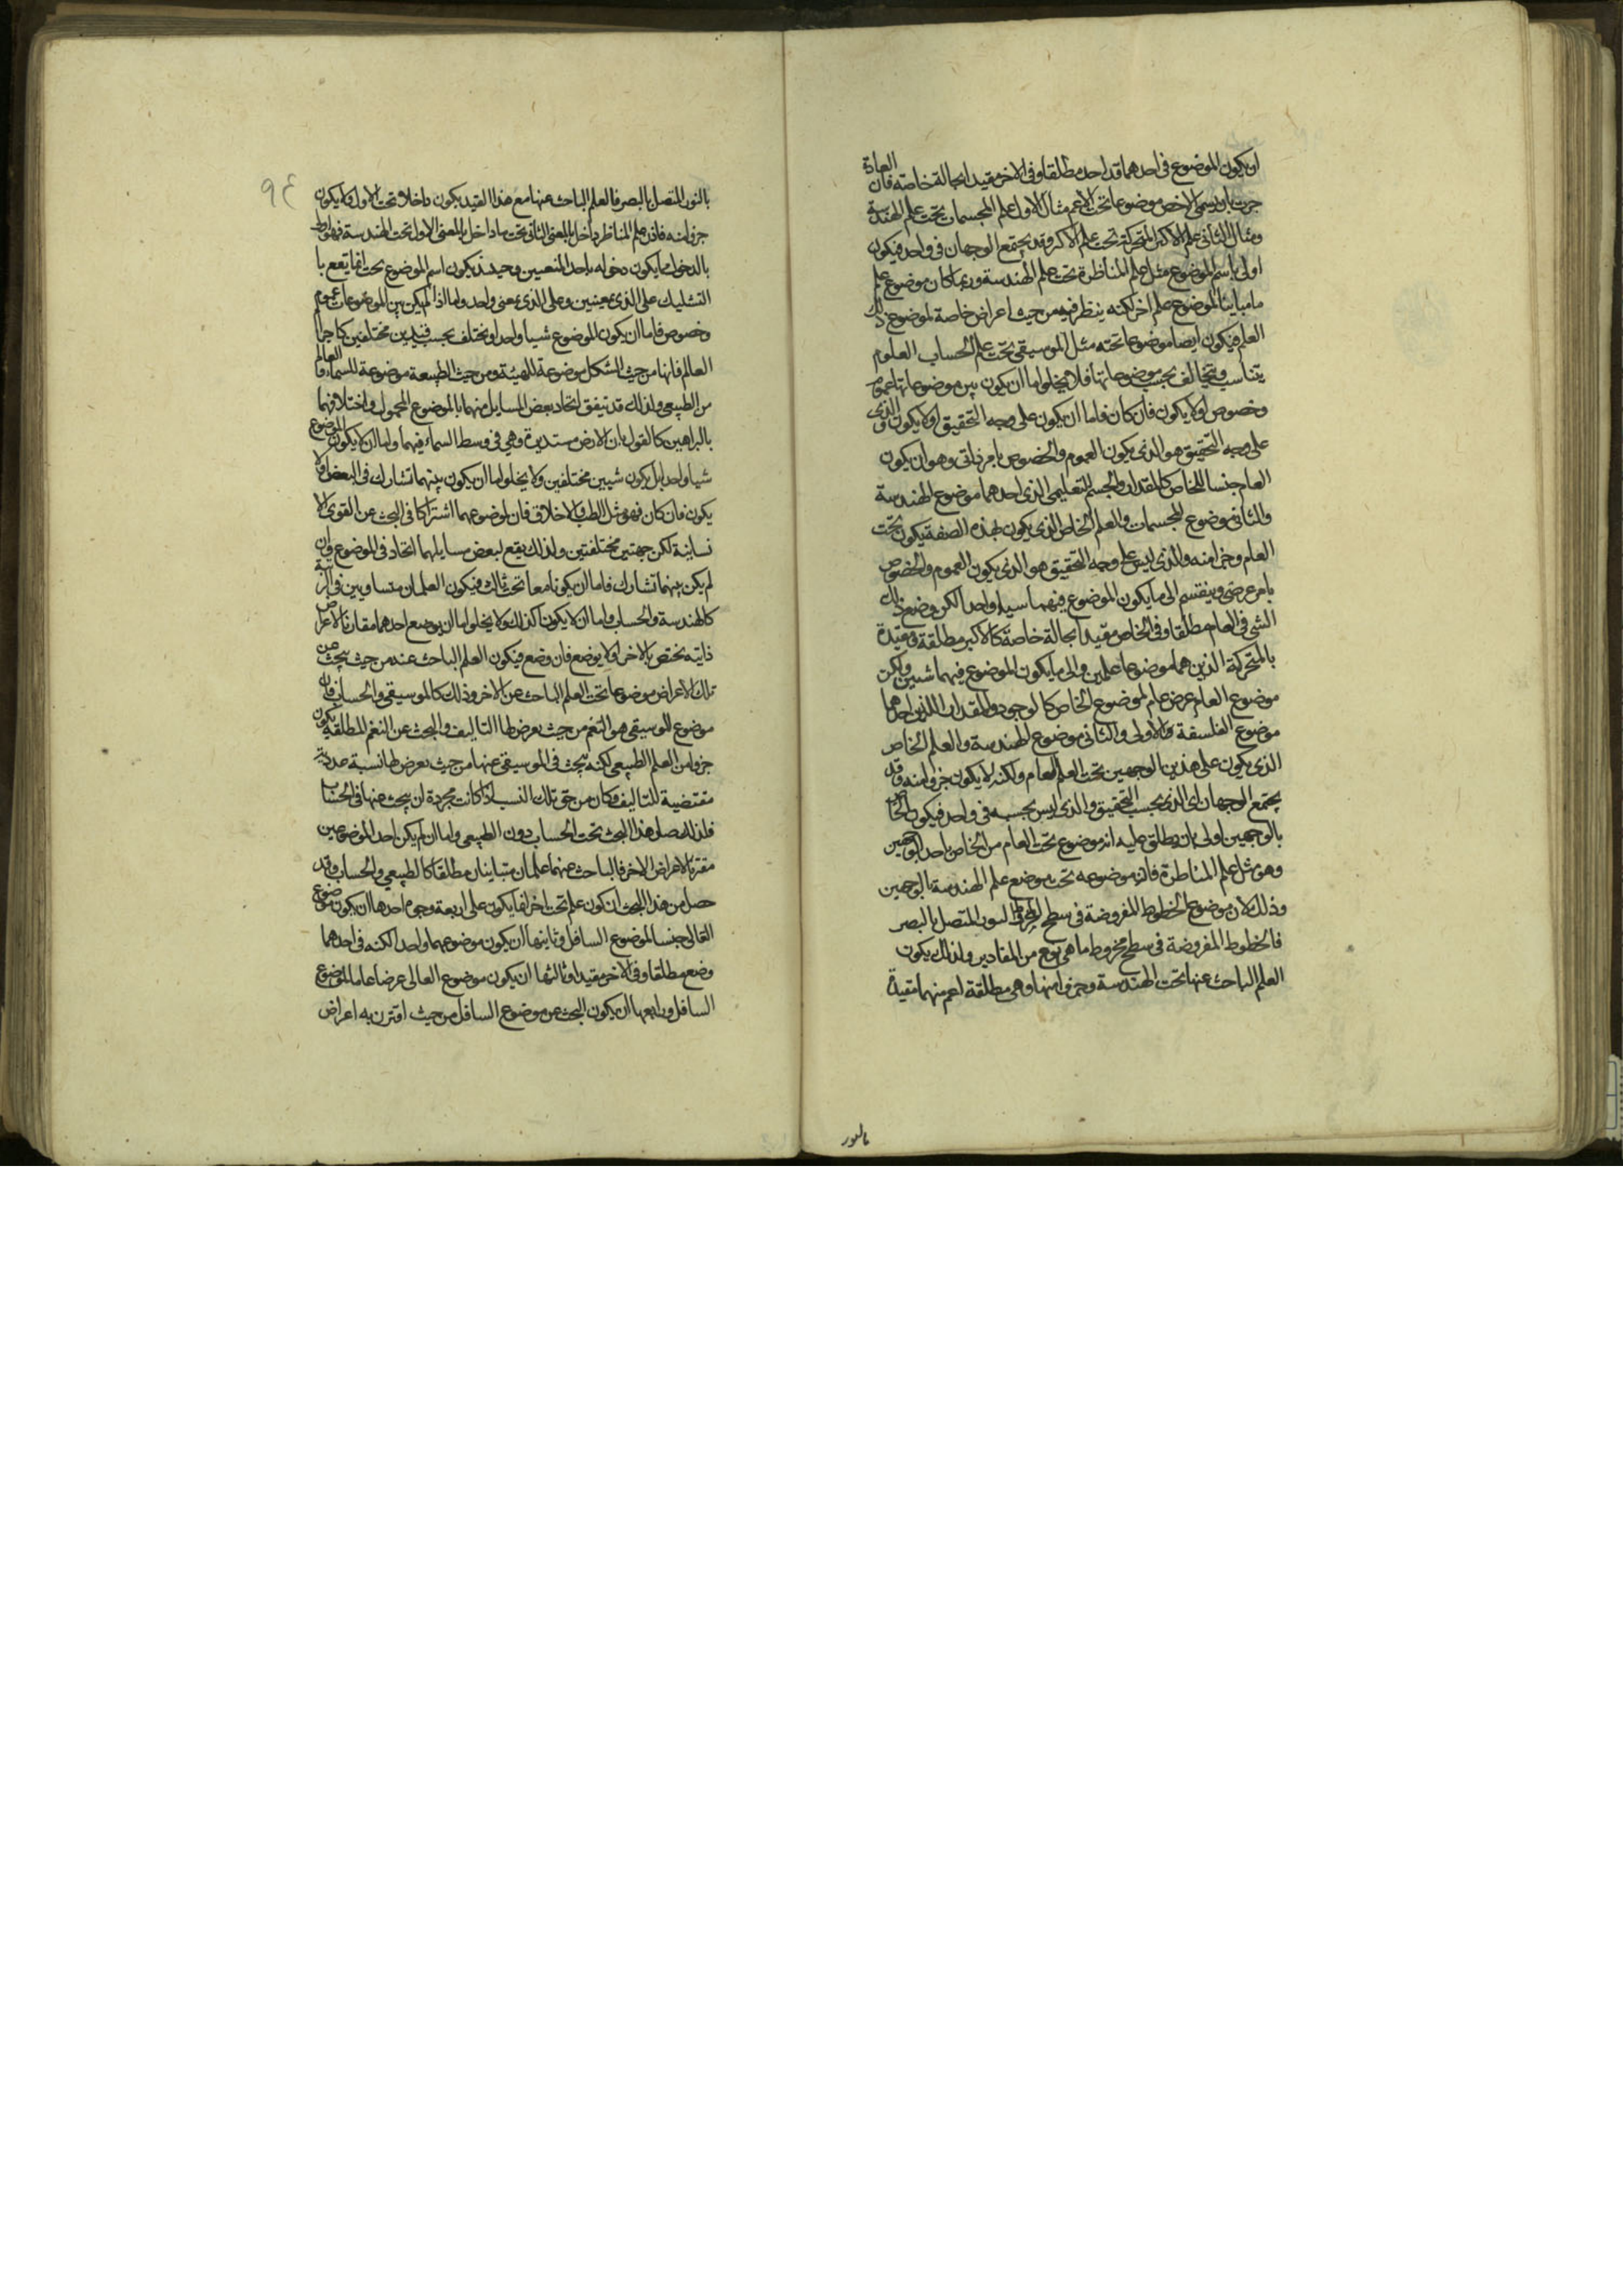 او يكون الموضوع في احدهما قد اخد مطلقا وفي الاخر مقيدا بحالة خاصة فان العادة
جرت بان يسمى الاخص موضوعا تحت الاعم مثال الاول علم المجسمات تحت علم الهندسة
ومثال الثاني علم الاكر المتحركة تحت علم الاكر وقد يجتمع الوجهان في واحد فيكون
اولى باسم الموضوع مثل علم المناظرة تحت علم الهندسة وربما كان موضوع علم
ما مباينا لموضوع علم اخر لكنه ينظر فيه من حيث اعراض خاصة لموضوع ذلك
العلم فيكون ايضا موضوعا تحته مثل الموسيقى تحت علم الحساب العلوم
يتناسب ويتخالف بحسب موضوعاتها فلا يخلوا ما ان يكون بين موضوعاتها عموم
وخصوص او لا يكون فان كان فاما ان يكون على وجه التحقيق او لا يكون والذي
على وجه التحقيق هو الذي يكون العموم والخصوص بامر ذاتي وهو ان يكون
العام جنسا للخاص كالمقدار والجسم التعليمي الذي احدهما موضوع الهندسة
والثاني موضوع المجسمات والعلم الخاص الذي يكون بهذه الصفة يكون تحت
العام وجزا منه والذي ليس على وجه التحقيق هو الذي يكون العموم والخصوص
بامر عرضي وينقسم الى ما يكون الموضوع فيهما شيا واحدا لكن وضع ذلك
الشي في العام مطلقا وفي الخاص مقيدا بحالة خاصة كالاكر مطلقة ومقيدة
بالمتحركة الذين هما موضوعا علمين والى ما يكون الموضوع فيهما شيين ولكن
موضوع العام عرض عام لموضوع الخاص كالوجود والمقدار اللذين احدهما
موضوع الفلسفة الاولى والثاني موضوع الهندسة والعلم الخاص
الذي يكون على هذين الوجهين تحت العلم العام ولكنه لا يكون جزوا منه وقد
يجتمع الوجهان اى الذي بحسب التحقيق والذي ليس بحسبه في واحد فيكون الخاص
بالوجهين اولى بان يطلق عليه انه موضوع تحت العام من الخاص باحد الوجهين
وهو مثل علم المناظرة فان موضوعه تحت موضوع علم الهندسة بالوجهين
وذلك لان موضوع الخطوط المفروضة في سطح مخروط النور المتصل بالبصر
فالخطوط المفروضة في سطح مخروط ما هي نوع من المقادير ولذلك يكون
العلم الباحث عنها تحت الهندسة وجزوا منها وهي مطلقة اعم منهما مقيدة
بالنور
٩٤
بالنور المتصل بالبصر فالعلم الباحث عنها مع هذا القيد يكون داخلا تحت الاول ولا يكون
جزوا منه فاذن علم المناظر داخل بالمعنى الثاني تحت ما داخل بالمعنى الاول تحت الهندسة فهو اولى
بالدخول مما يكون دخوله باحد المعنيين وحينئذ يكون اسم الموضوع تحت انما يقع با
التشكيك على الذي بمعنيين وعلى الذي بمعنى واحد واما اذا لم يكن بين الموضوعات عموم
وخصوص فاما ان يكون الموضوع شيا واحدا ويختلف بحسب قيدين مختلفين كاجرام
العالم فانها من حيث الشكل موضوعة للهيئة ومن حيث الطبيعة موضوعة للسماء والعالم
من الطبيعي ولذلك قد يتفق اتحاد بعض المسايل منهما بالموضوع المحمول واختلافهما
بالبراهين كالقول بان الارض مستديرة وهي في وسط السماء فيهما واما ان لا يكون الموضوع
شيا واحدا بل يكون شيين مختلفين ولا يخلوا ما ان يكون بينهما تشارك في البعض او لا
يكون فان كان فهو مثل الطب والاخلاق فان لموضوعهما اشتراكا في البحث عن القوى الا
نسانية لكن جهتين مختلفتين ولذلك يقع لبعض مسايلهما اتحاد في الموضوع وان
لم يكن بينهما تشارك فاما ان يكونا معا تحت ثالث فيكون العلمان متساويين في الرتبة
كالهندسة والحساب واما ان لا يكون كذلك ولا يخلوا ما ان يوضع احدهما مقارنا لاعراض
ذاتية تختص بالاخر او لا يوضع فان وضع فيكون العلم الباحث عنه من حيث يبحث عن
تلك الاعراض موضوعا تحت العلم الباحث عن الاخر وذلك كالموسيقى والحساب فان
موضوع الموسيقى هو النغم من حيث يعرض لها التاليف والبحث عن النغم المطلقة يكون
جزوا من العلم الطبيعي لكنه يبحث في الموسيقى عنها من حيث يعرض لها نسبة عددية
مقتضية للتاليف وكان من حق تلك النسب اذا كانت مجردة ان يبحث عنها في الحساب
فلذلك صار هذا البحث تحت الحساب دون الطبيعي واما ان لم يكن احد الموضوعين
مقترنا لاعراض الاخر فالباحث عنهما علمان متباينان مطلقا كالطبيعي والحساب وقد
حصل من هذا البحث ان كون علم تحت اخر انما يكون على اربعة وجوه احدها ان يكون موضوع
العالى جنسا لموضوع السافل وثانيها ان يكون موضوعهما واحدا لكنه في احدهما
وضع مطلقا وفي الاخر مقيدا وثالثها ان يكون موضوع العالى عرضا عاما لموضوع
السافل ورابعها ان يكون البحث عن موضوع السافل من حيث اقترن به اعراض